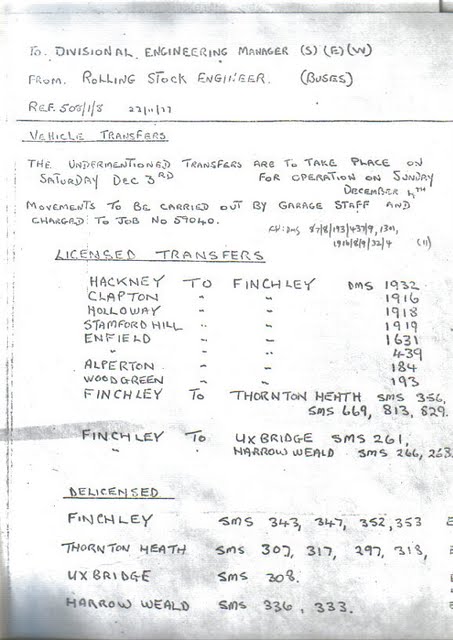 TO. DIVISIONAL ENGINEERING MANAGER (S) (E) (W)
FROM. ROLLING STOCK ENGINEER. (BUSES)
REF. 508/1/8 22/11/77
VEHICLE TRANSFERS
THE UNDERMENTIONED TRANSFERS ARE TO TAKE PLACE ON
SATURDAY DEC 3RD FOR OPERATION ON SUNDAY
DECEMBER 4TH
MOVEMENTS TO BE CARRIED OUT BY GARAGE STAFF AND
CHARGED TO JOB NO 59040.
(11)
LICENSED TRANSFERS
HACKNEY TO FINCHLEY DMS 1932
CLAPTON " " 1916
HOLLOWAY " " 1918
STAMFORD HILL " " 1919
ENFIELD " " 1631
" " " 439
ALPERTON " " 184
WOODGREEN " " 193
FINCHLEY TO THORNTON HEATH SMS 356,
SMS 669, 813, 829.
FINCHLEY TO UXBRIDGE SMS 261,
" " HARROW WEALD SMS 266, 263
DELICENSED
FINCHLEY SMS 343, 347, 352, 353
THORNTON HEATH SMS 307, 317, 297, 318,
UXBRIDGE SMS 308.
HARROW WEALD SMS 336, 333.